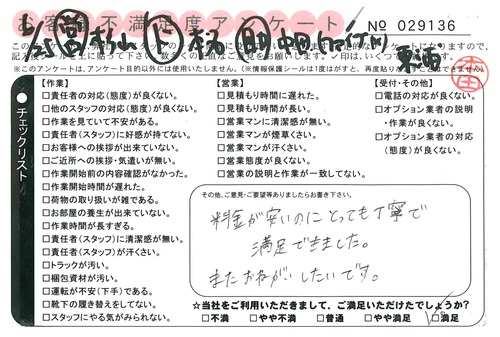 お客様不満足度アンケート
No 029136
チェックリスト
【作業】
□責任者の対応(態度)が良くない。
□他のスタッフの対応(態度)が良くない。
□作業を見ていて不安がある。
□責任者(スタッフ)に好感が持てない。
□お客様への挨拶が出来ていない。
□ご近所への挨拶・気遣いが無い。
□作業開始前の内容確認がなかった。
□作業開始時間が遅れた。
□荷物の取り扱いが雑である。
□お部屋の養生が出来ていない。
□作業時間が長すぎる。
□責任者(スタッフ)に清潔感が無い。
□責任者(スタッフ)が汗くさい。
□トラックが汚い。
□梱包資材が汚い。
□運転が不安(下手)である。
□靴下の履き替えをしてない。
□スタッフにやる気がみられない。
【営業】
□見積もり時間に遅れた。
□見積もり時間が長い。
□営業マンに清潔感が無い。
□営業マンが煙草くさい。
□営業マンが汗くさい。
□営業態度が良くない。
□営業の説明と作業が一致してない。
【受付・その他】
□電話の対応が良くない。
□オプション業者の説明
・作業が良くない。
□オプション業者の対応
(態度)が良くない。
その他、ご意見・ご要望等ありましたらお書き下さい。
料金が安いのにとっても丁寧で
満足できました。
またおねがいしたいです。
☆当社をご利用いただきまして、ご満足いただけたでしょうか?
□不満 □やや不満 □普通 □やや満足 □満足